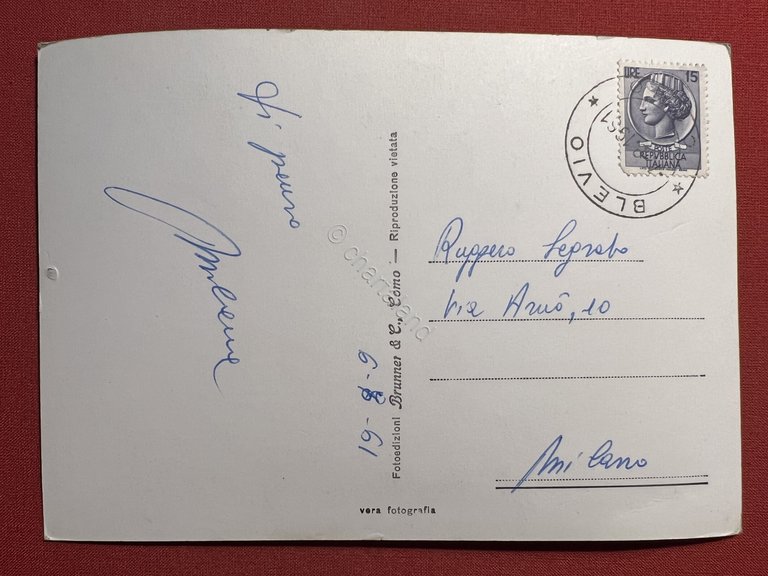 Ti penso
6-8-61
Fotoedizioni Brunner & C., Como — Riproduzione vietata
© chartaland
LIRE 15
POSTE
REPVBBLICA
ITALIANA
BLEVIO
Ruggero
Via Arnô, 10
Milano
vera fotografia